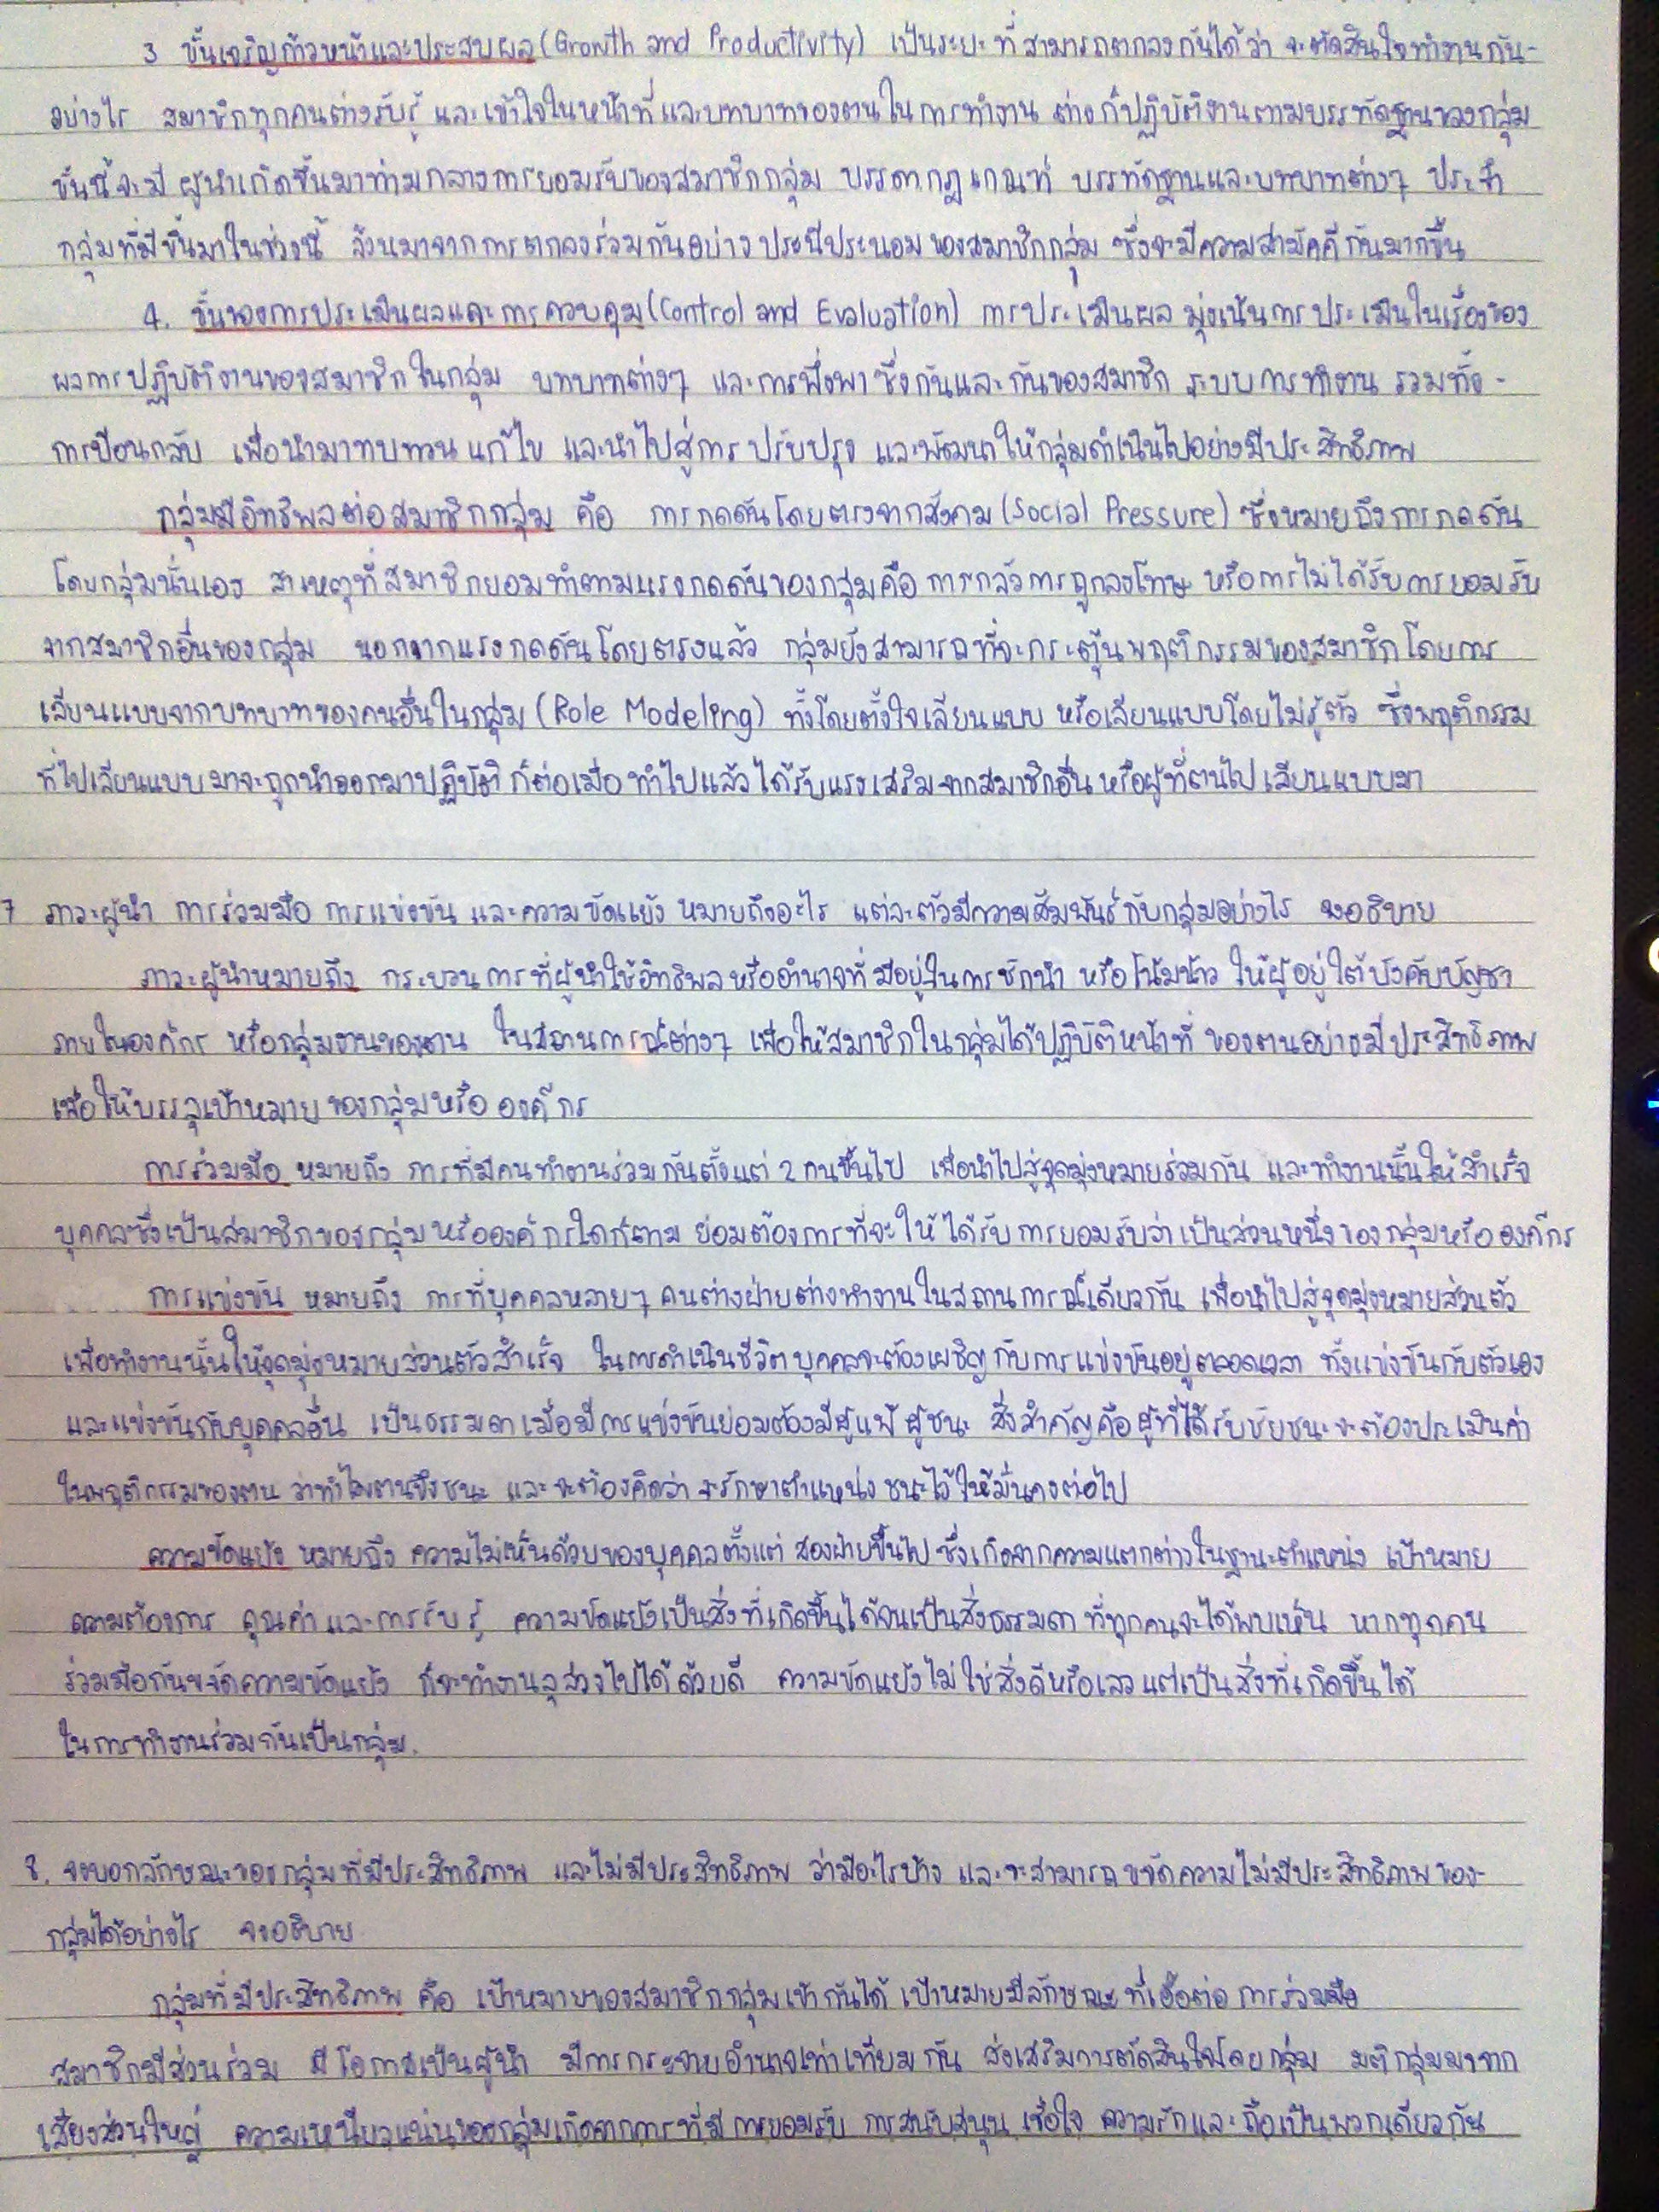 3 ขั้นเจริญก้าวหน้าและประสบผล (Growth and Productivity) เป็นระยะที่สามารถตกลงกันได้ว่า จะตัดสินใจทำงานกัน-
อย่างไร สมาชิกทุกคนต่างรับรู้ และเข้าใจในหน้าที่และบทบาทของตนในการทำงาน ต่างก็ปฏิบัติงานตามบรรทัดฐานของกลุ่ม
ขั้นนี้จะมีผู้นำเกิดขึ้นมาท่ามกลางการยอมรับของสมาชิกกลุ่ม บรรดากฎเกณฑ์ บรรทัดฐานและบทบาทต่างๆ ประจำ
กลุ่มที่มีขึ้นมาในช่วงนี้ ล้วนมาจากการตกลงร่วมกันอย่างประนีประนอมของสมาชิกกลุ่ม ซึ่งจะมีความสามัคคีกันมากขึ้น
4. ขั้นของการประเมินผลและการควบคุม (Control and Evaluation) การประเมินผล มุ่งเน้นการประเมินในเรื่องของ
ผลการปฏิบัติงานของสมาชิกในกลุ่ม บทบาทต่างๆ และการพึ่งพาซึ่งกันและกันของสมาชิก ระบบการทำงาน รวมทั้ง-
การป้อนกลับ เพื่อนำมาทบทวน แก้ไข และนำไปสู่การปรับปรุง และพัฒนาให้กลุ่มดำเนินไปอย่างมีประสิทธิภาพ
กลุ่มมีอิทธิพลต่อสมาชิกกลุ่ม คือ การกดดันโดยตรงจากสังคม (Social Pressure) ซึ่งหมายถึงการกดดัน
โดยกลุ่มนั่นเอง สาเหตุที่สมาชิกยอมทำตามแรงกดดันของกลุ่มคือ การกลัวการถูกลงโทษ หรือการไม่ได้รับการยอมรับ
จากสมาชิกอื่นของกลุ่ม นอกจากแรงกดดันโดยตรงแล้ว กลุ่มยังสามารถที่จะกระตุ้นพฤติกรรมของสมาชิกโดยการ
เลียนแบบจากบทบาทของคนอื่นในกลุ่ม (Role Modeling) ทั้งโดยตั้งใจเลียนแบบ หรือเลียนแบบโดยไม่รู้ตัว ซึ่งพฤติกรรม
ที่ไปเลียนแบบมาจะถูกนำออกมาปฏิบัติ ก็ต่อเมื่อ ทำไปแล้วได้รับแรงเสริมจากสมาชิกอื่น หรือผู้ที่ตนไปเลียนแบบมา
7 ภาวะผู้นำ การร่วมมือ การแข่งขัน และความขัดแย้ง หมายถึงอะไร แต่ละตัวมีความสัมพันธ์กับกลุ่มอย่างไร จงอธิบาย
ภาวะผู้นำหมายถึง กระบวนการที่ผู้นำใช้อิทธิพลหรืออำนาจที่มีอยู่ในการชักนำ หรือโน้มน้าว ให้ผู้อยู่ใต้บังคับบัญชา
ภายในองค์กร หรือกลุ่มงานของตน ในสถานการณ์ต่างๆ เพื่อให้สมาชิกในกลุ่มได้ปฏิบัติหน้าที่ ของตนอย่างมีประสิทธิภาพ
เพื่อให้บรรลุเป้าหมายของกลุ่มหรือ องค์กร
การร่วมมือ หมายถึง การที่มีคนทำงานร่วมกันตั้งแต่ 2 คนขึ้นไป เพื่อนำไปสู่จุดมุ่งหมายร่วมกัน และทำงานนั้นให้สำเร็จ
บุคคลซึ่งเป็นสมาชิกของกลุ่มหรือองค์กรใดก็ตาม ย่อมต้องการที่จะให้ได้รับการยอมรับว่าเป็นส่วนหนึ่งของกลุ่มหรือองค์กร
การแข่งขัน หมายถึง การที่บุคคลหลายๆ คนต่างฝ่ายต่างทำงานในสถานการณ์เดียวกัน เพื่อนำไปสู่จุดมุ่งหมายส่วนตัว
เพื่อทำงานนั้นให้จุดมุ่งหมายส่วนตัวสำเร็จ ในการดำเนินชีวิตบุคคลจะต้องเผชิญกับการแข่งขันอยู่ตลอดเวลา ทั้งแข่งขันกับตัวเอง
และแข่งขันกับบุคคลอื่น เป็นธรรมดาเมื่อมีการแข่งขันย่อมต้องมีผู้แพ้ ผู้ชนะ สิ่งสำคัญคือ ผู้ที่ได้รับชัยชนะจะต้องประเมินค่า
ในพฤติกรรมของตน ว่าทำไมตนจึงชนะ และจะต้องคิดว่า จะรักษาตำแหน่งชนะไว้ให้มั่นคงต่อไป
ความขัดแย้ง หมายถึง ความไม่เห็นด้วยของบุคคลตั้งแต่ สองฝ่ายขึ้นไป ซึ่งเกิดจากความแตกต่างในฐานะตำแหน่ง เป้าหมาย
ความต้องการ คุณค่า และการรับรู้ ความขัดแย้งเป็นสิ่งที่เกิดขึ้นได้จนเป็นสิ่งธรรมดา ที่ทุกคนจะได้พบเห็น หากทุกคน
ร่วมมือกันขจัดความขัดแย้ง ก็จะทำงานลุล่วงไปได้ด้วยดี ความขัดแย้งไม่ใช่สิ่งดีหรือเลวแต่เป็นสิ่งที่เกิดขึ้นได้
ในการทำงานร่วมกันเป็นกลุ่ม.
8. จงบอกลักษณะของกลุ่มที่มีประสิทธิภาพ และไม่มีประสิทธิภาพ ว่ามีอะไรบ้าง และจะสามารถขจัดความไม่มีประสิทธิภาพของ-
กลุ่มได้อย่างไร จงอธิบาย
กลุ่มที่มีประสิทธิภาพ คือ เป้าหมายของสมาชิกกลุ่มเข้ากันได้ เป้าหมายมีลักษณะที่เอื้อต่อ การร่วมมือ
สมาชิกมีส่วนร่วม มีโอกาสเป็นผู้นำ มีการกระจายอำนาจเท่าเทียมกัน ส่งเสริมการตัดสินใจโดยกลุ่ม มติกลุ่มมาจาก
เสียงส่วนใหญ่ ความเหนียวแน่นของกลุ่มเกิดจากการที่มี การยอมรับ การสนับสนุน เชื่อใจ ความรักและถือเป็นพวกเดียวกัน